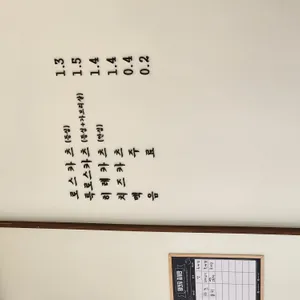 로스카츠 (등심) 1.3
특로스카츠 (등심+가브리살) 1.5
히레카츠 (안심) 1.4
치즈카츠 1.4
맥주 0.4
음료 0.2